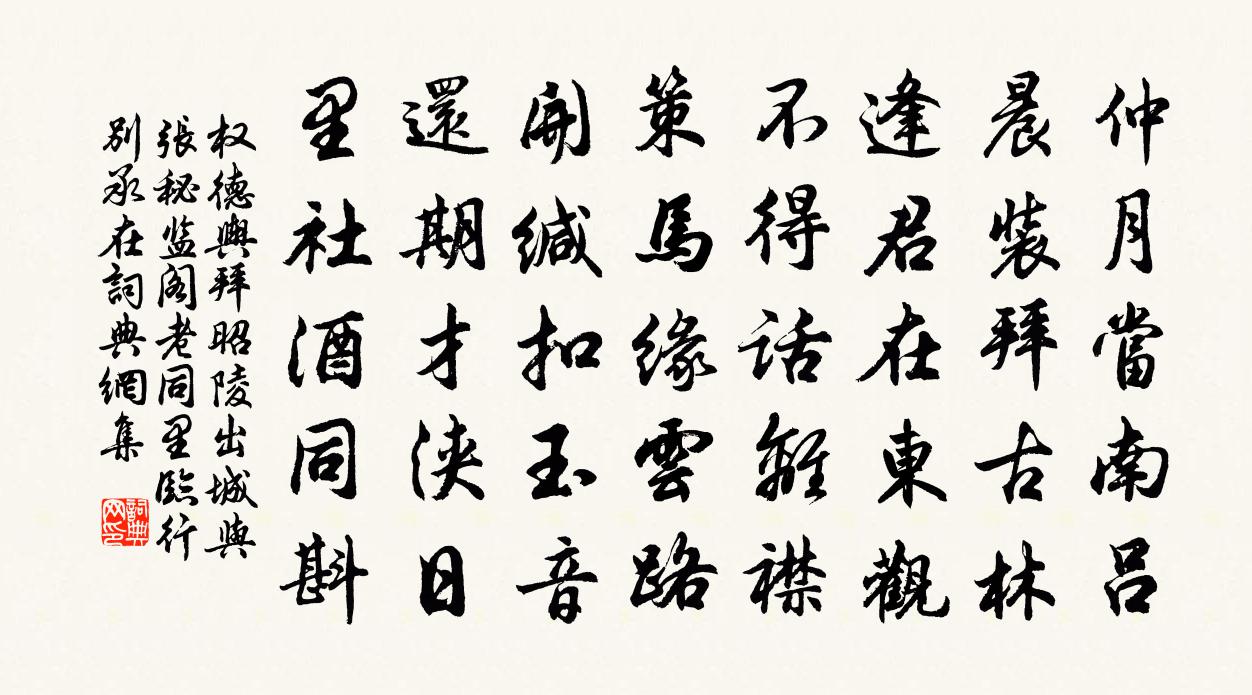 仲月當南呂
晨裝拜古林
逢君在東觀
不得話離襟
策馬緣雲路
開緘扣玉音
還期才浹日
里社酒同斟
权德輿拜昭陵出城與
張秘监阁老同里臨行
别承在詞典網集
詞典
网印